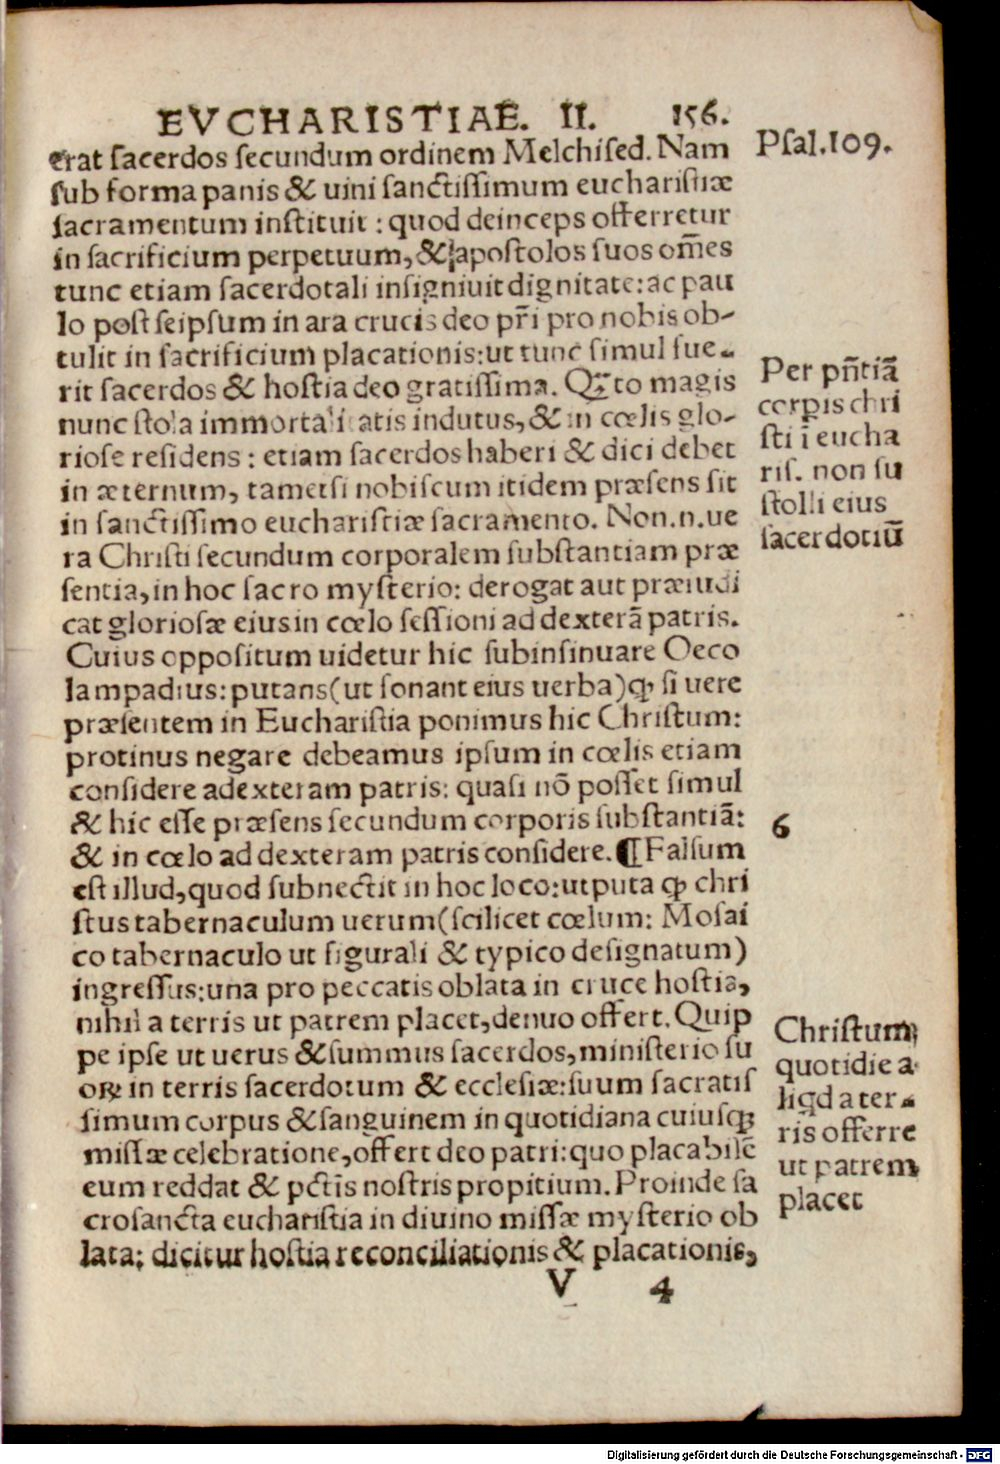 EVCHARISTIAE. II. 156.
erat sacerdos secundum ordinem Melchised. Nam
Psal.109.
sub forma panis & uini sanctissimum eucharistiæ
sacramentum instituit : quod deinceps offerretur
in sacrificium perpetuum, & apostolos suos om̄es
tunc etiam sacerdotali insigniuit dignitate: ac pau
lo post seipsum in ara crucis deo pr̄i pro nobis ob-
tulit in sacrificium placationis: ut tunc simul fue-
rit sacerdos & hostia deo gratissima. Quāto magis
nunc stola immortalitatis indutus, & in cœlis glo-
riose residens : etiam sacerdos haberi & dici debet
in æternum, tametsi nobiscum itidem præsens sit
in sanctissimo eucharistiæ sacramento. Non.n.ue
ra Christi secundum corporalem substantiam præ
sentia, in hoc sacro mysterio: derogat aut præiudi
cat gloriosæ eius in cœlo sessioni ad dexterā patris.
Per pn̄tiā
corpis chri
sti ī eucha
ris. non su
stolli eius
sacerdotiū
Cuius oppositum uidetur hic subinsinuare Oeco
lampadius: putans (ut sonant eius uerba) ꝙ si uere
præsentem in Eucharistia ponimus hic Christum:
protinus negare debeamus ipsum in cœlis etiam
considere ad exteram patris: quasi nō posset simul
& hic esse præsens secundum corporis substantiā:
6
& in cœlo ad dexteram patris considere. ¶ Falsum
est illud, quod subnectit in hoc loco: utputa ꝙ chri
stus tabernaculum uerum (scilicet cœlum: Mosai
co tabernaculo ut figurali & typico designatum)
ingressus: una pro peccatis oblata in cruce hostia,
nihil a terris ut patrem placet, denuo offert. Quip
pe ipse ut uerus & summus sacerdos, ministerio su
oꝝ in terris sacerdotum & ecclesiæ: suum sacratis
simum corpus & sanguinem in quotidiana cuiusꝗ
missæ celebratione, offert deo patri: quo placabilē
eum reddat & pctīs nostris propitium. Proinde sa
crosancta eucharistia in diuino missæ mysterio ob
lata; dicitur hostia reconciliationis & placationis,
Christum
quotidie a
liqd a ter-
ris offerre
ut patrem
placet
V 4
Digitalisierung gefördert durch die Deutsche Forschungsgemeinschaft - DFG